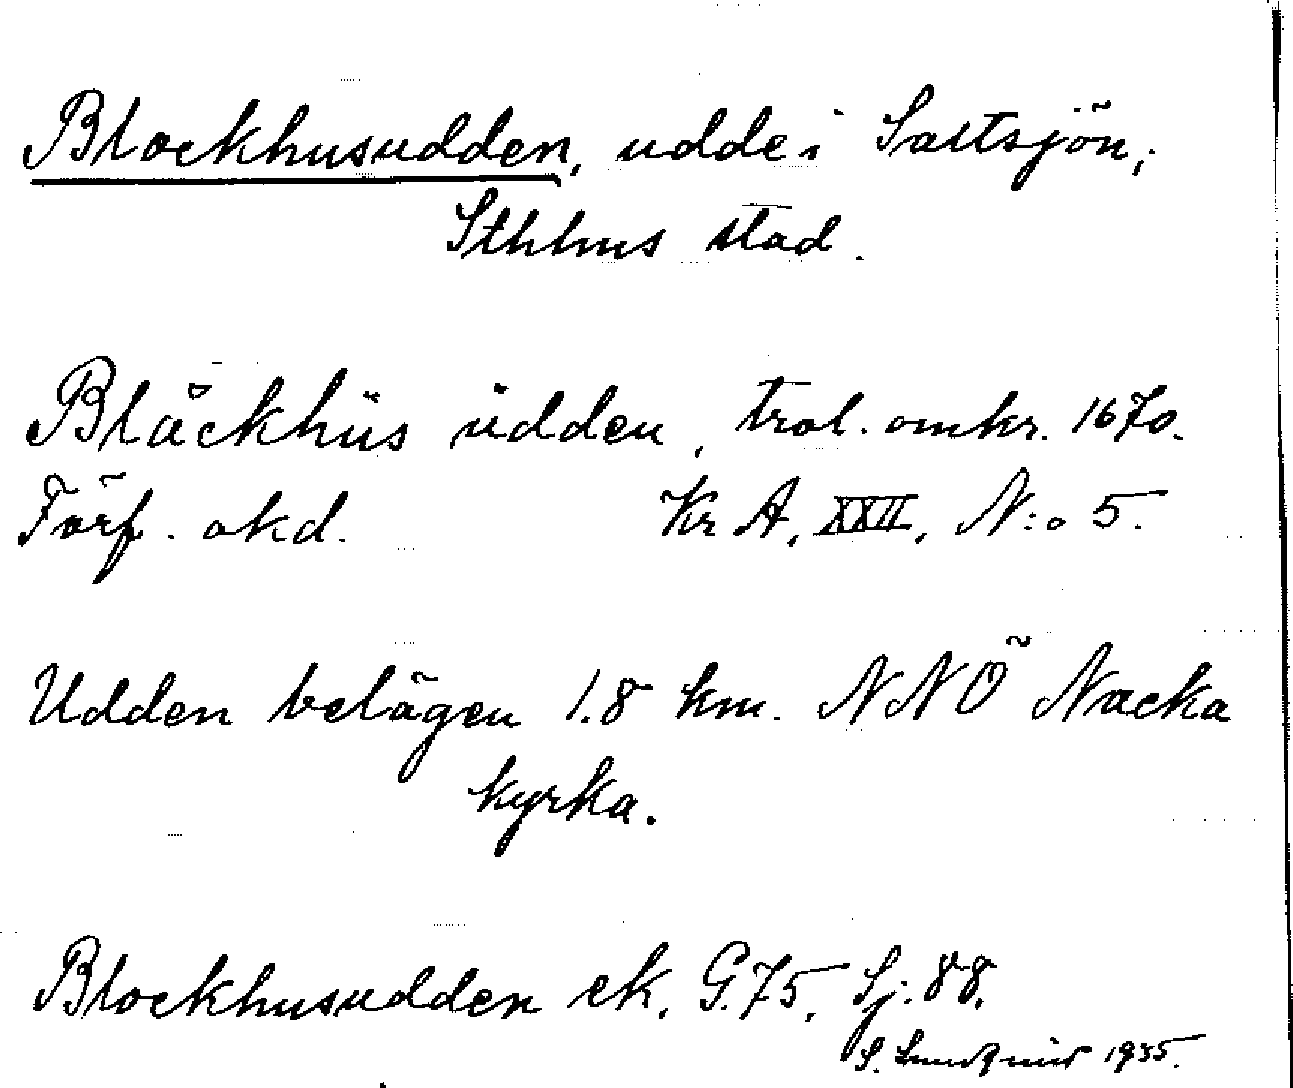 Blockhusudden, udde i Saltsjön,
Sthlms stad.
Blåckhüs üdden, trol. omkr. 1670.
Förf. okd. Kr A, XXII, N:o 5.
Udden belägen 1.8 km. NNÖ Nacka
kyrka.
Blockhusudden ek. G.75, Sj. 88.
S. Lundqvist 1935.